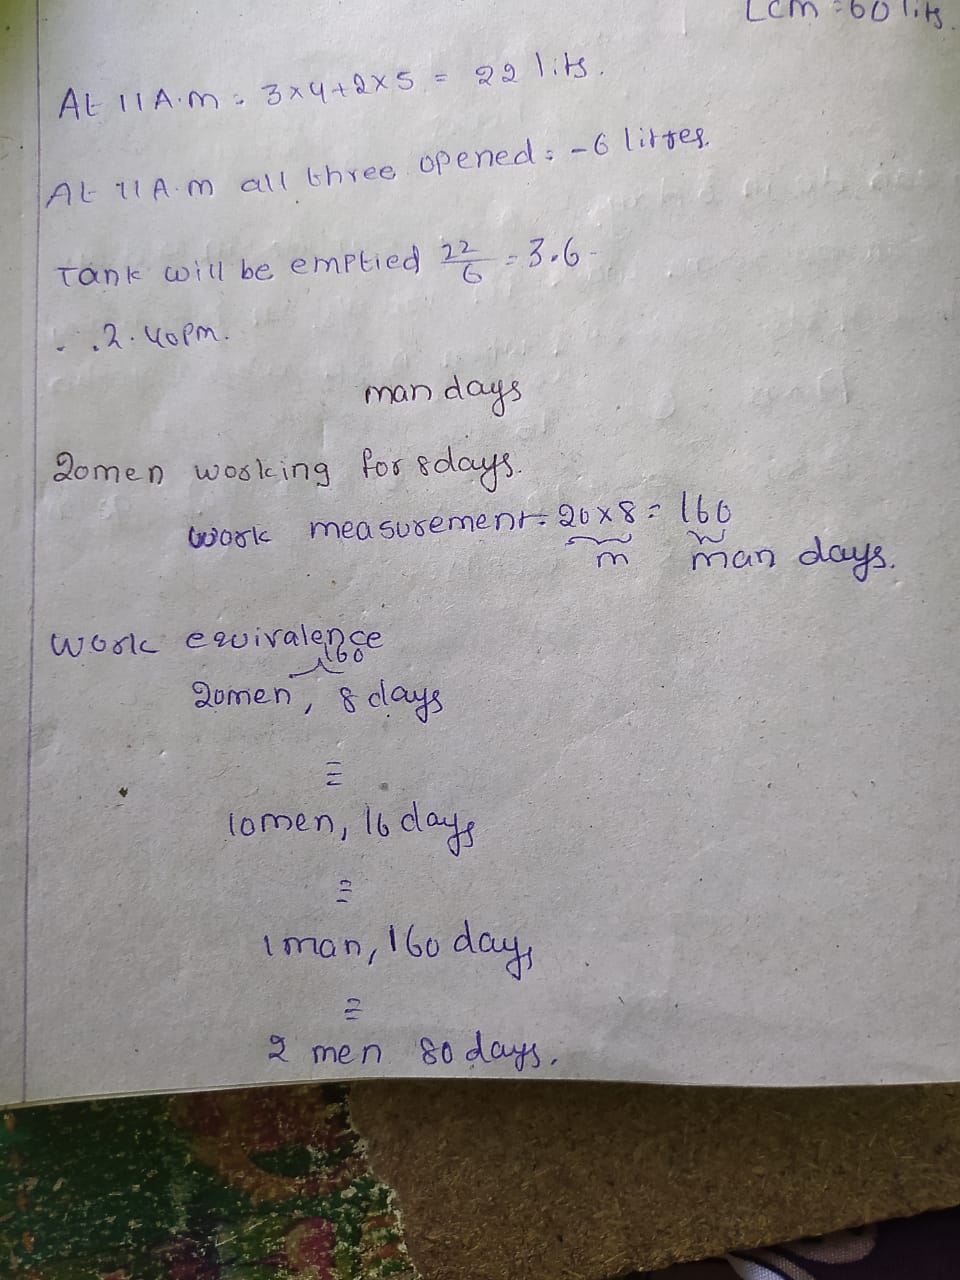 LCM = 60 lits.
At 11 A.m = 3x4+2x5 = 22 lits.
At 11 A.m all three opened = -6 litres.
Tank will be emptied 22/6 = 3.6-
∴ 2.40pm.
man days
20men working for 8days.
work measurement = 20x8 = 160
m man days.
work equivalence
160
20men, 8 days
≡
10men, 16 days
≡
1 man, 160 days
≡
2 men 80 days.